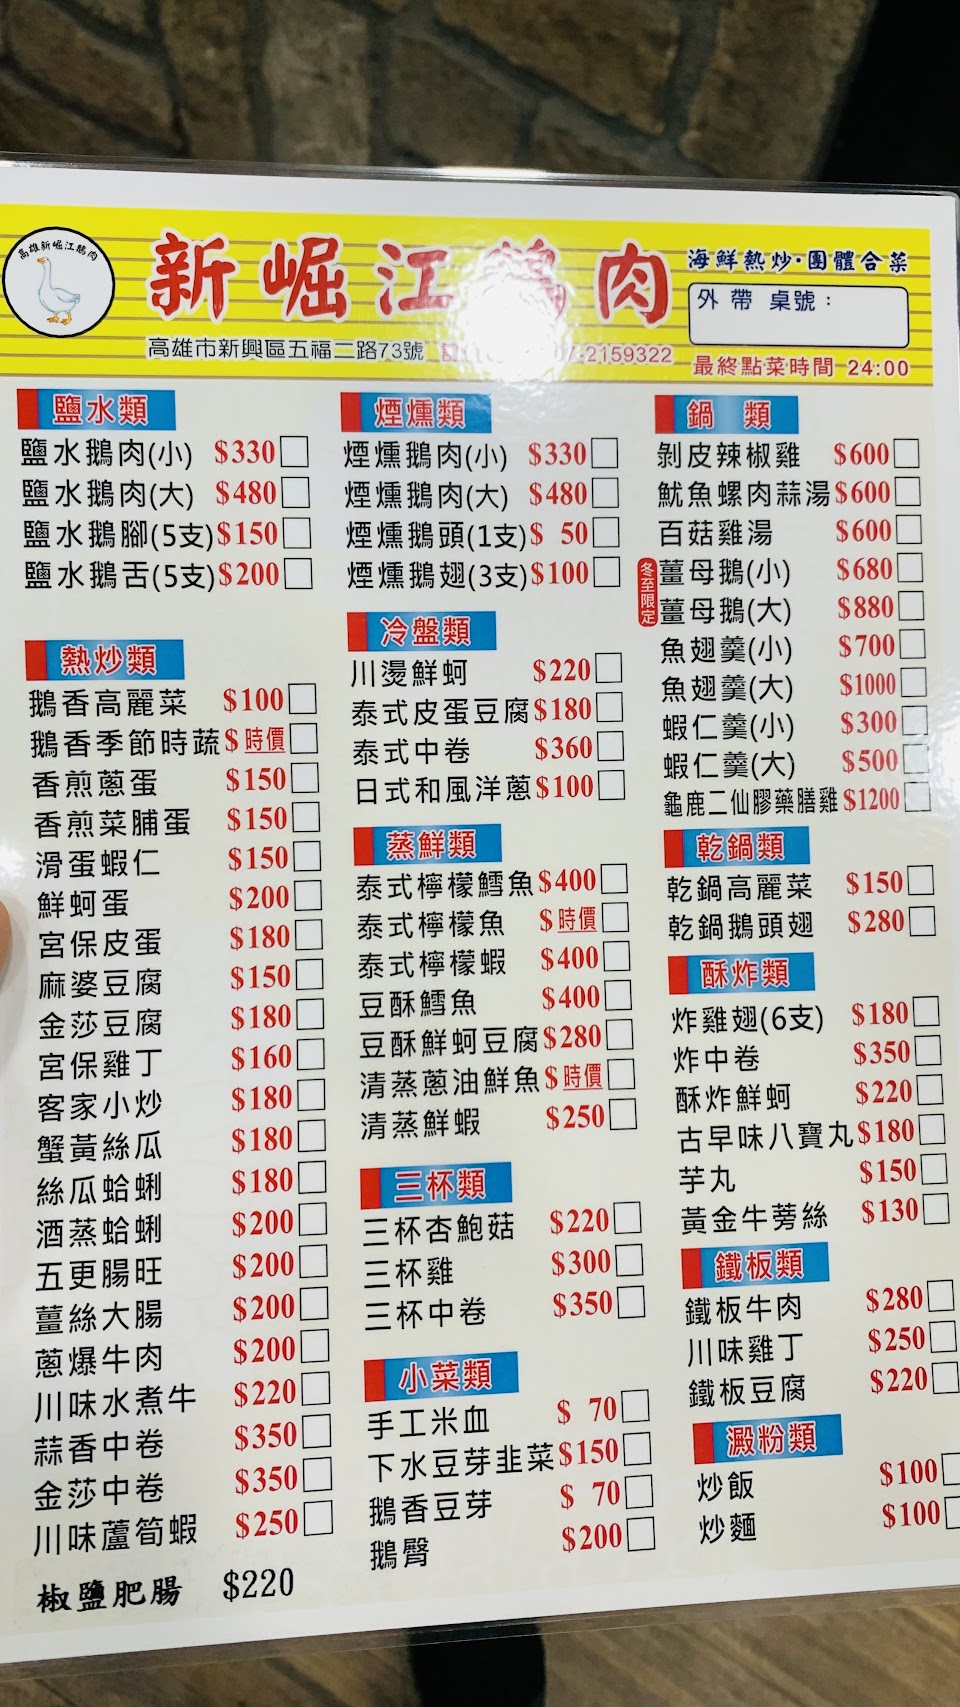 高雄新崛江鵝肉
新崛江鵝肉
海鮮熱炒·團體合菜
外帶 桌號：
高雄市新興區五福二路73號
07-2159322
最終點菜時間 24:00
鹽水類
鹽水鵝肉(小) $330
鹽水鵝肉(大) $480
鹽水鵝腳(5支) $150
鹽水鵝舌(5支) $200
熱炒類
鵝香高麗菜 $100
鵝香季節時蔬 $時價
香煎蔥蛋 $150
香煎菜脯蛋 $150
滑蛋蝦仁 $150
鮮蚵蛋 $200
宮保皮蛋 $180
麻婆豆腐 $150
金莎豆腐 $180
宮保雞丁 $160
客家小炒 $180
蟹黃絲瓜 $180
絲瓜蛤蜊 $180
酒蒸蛤蜊 $200
五更腸旺 $200
薑絲大腸 $200
蔥爆牛肉 $200
川味水煮牛 $220
蒜香中卷 $350
金莎中卷 $350
川味蘆筍蝦 $250
椒鹽肥腸 $220
煙燻類
煙燻鵝肉(小) $330
煙燻鵝肉(大) $480
煙燻鵝頭(1支) $ 50
煙燻鵝翅(3支) $100
冷盤類
川燙鮮蚵 $220
泰式皮蛋豆腐 $180
泰式中卷 $360
日式和風洋蔥 $100
蒸鮮類
泰式檸檬鱈魚 $400
泰式檸檬魚 $時價
泰式檸檬蝦 $400
豆酥鱈魚 $400
豆酥鮮蚵豆腐 $280
清蒸蔥油鮮魚 $時價
清蒸鮮蝦 $250
三杯類
三杯杏鮑菇 $220
三杯雞 $300
三杯中卷 $350
小菜類
手工米血 $ 70
下水豆芽韭菜 $150
鵝香豆芽 $ 70
鵝臀 $200
鍋類
剝皮辣椒雞 $600
魷魚螺肉蒜湯 $600
百菇雞湯 $600
冬至限定
薑母鵝(小) $680
薑母鵝(大) $880
魚翅羹(小) $700
魚翅羹(大) $1000
蝦仁羹(小) $300
蝦仁羹(大) $500
龜鹿二仙膠藥膳雞 $1200
乾鍋類
乾鍋高麗菜 $150
乾鍋鵝頭翅 $280
酥炸類
炸雞翅(6支) $180
炸中卷 $350
酥炸鮮蚵 $220
古早味八寶丸 $180
芋丸 $150
黃金牛蒡絲 $130
鐵板類
鐵板牛肉 $280
川味雞丁 $250
鐵板豆腐 $220
澱粉類
炒飯 $100
炒麵 $100